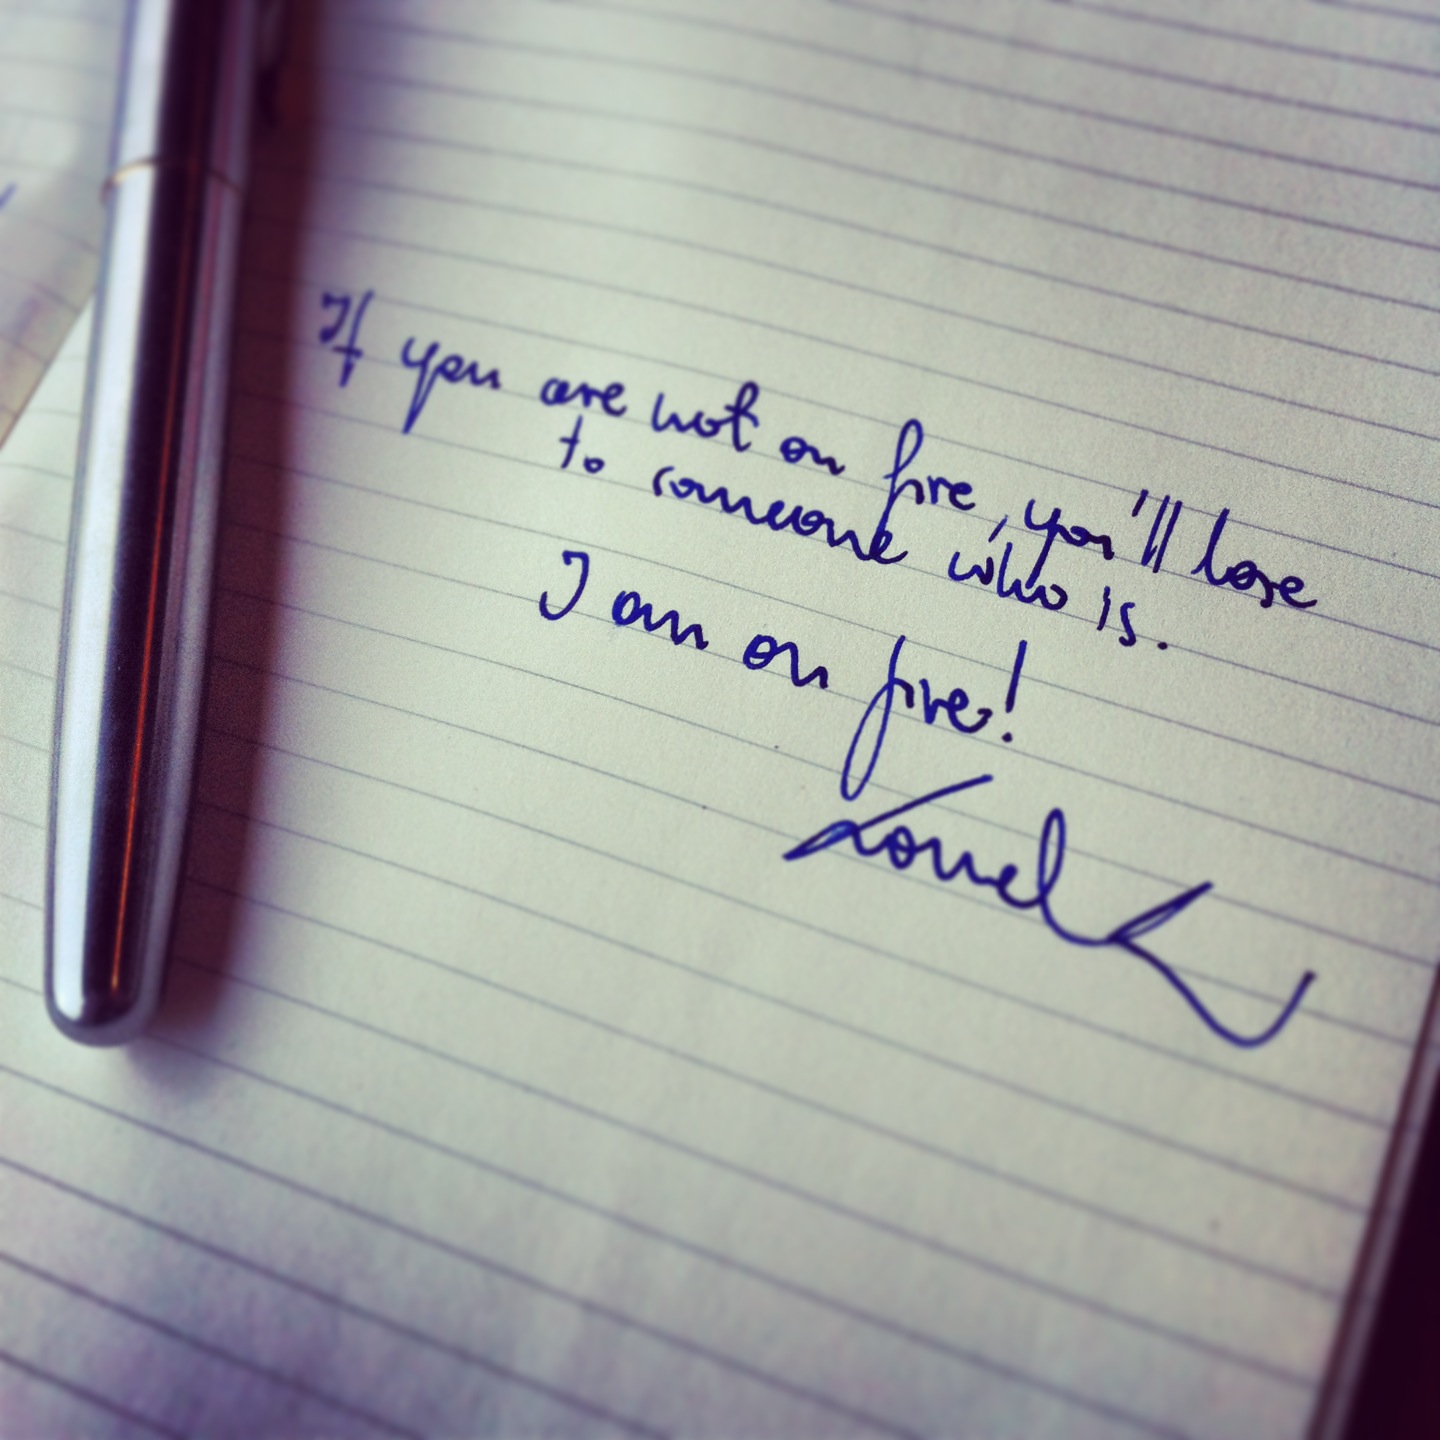 If you are not on fire, you'll lose
to someone who is.
I am on fire!